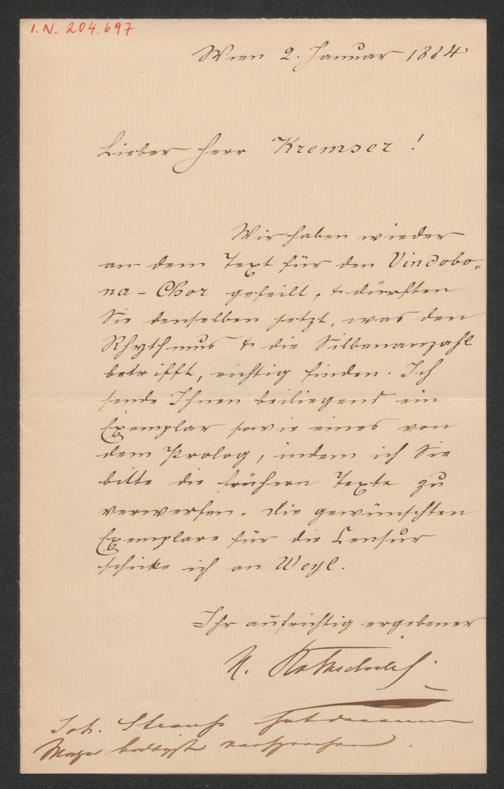 I.N. 204.697
Wien 2. Januar 1884
Lieber Herr Kremser!
Wir haben wieder
an dem Text für den Vindobo-
na-Chor gefeilt, & dürften
Sie denselben jetzt, was den
Rhythmus & die Silbenanzahl
betrifft, richtig finden. Ich
sende Ihnen beiliegend ein
Exemplar sowie eines von
dem Prolog, indem ich Sie
bitte die frühern Texte zu
verwerfen. Die gewünschten
Exemplare für die Censur
schicke ich an Weyl.
Ihr aufrichtig ergebener
Joh. Strauss